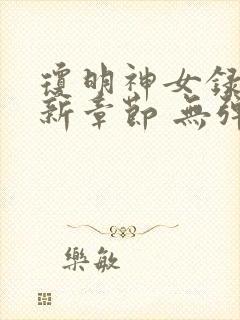 瓊明神女録
新章節 無彈
樂敏